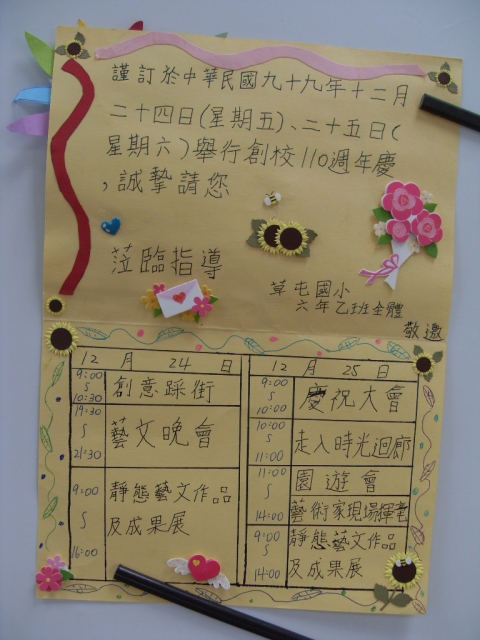 謹訂於中華民國九十九年十二月
二十四日(星期五)、二十五日(
星期六)舉行創校110週年慶
,誠摯請您
蒞臨指導
草屯國小
六年乙班全體
敬邀
12 月 24 日
9:00
S
10:30
創意踩街
19:30
S
21:30
藝文晚會
9:00
S
16:00
靜態藝文作品
及成果展
12 月 25 日
9:00
S
10:00
慶祝大會
10:00
S
11:00
走入時光迴廊
11:00
S
14:00
園遊會
藝術家現場揮毫
9:00
S
14:00
靜態藝文作品
及成果展